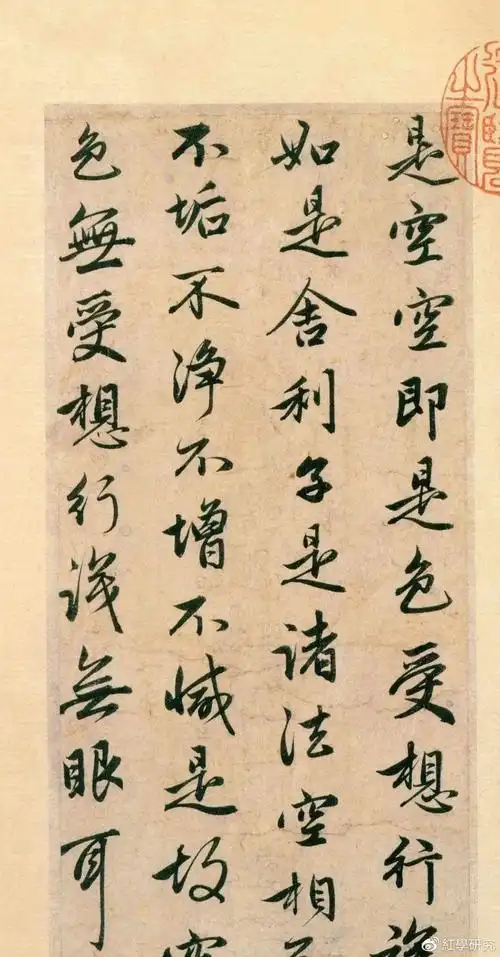 是空空即是色受想行識
如是舍利子是諸法空相不
不垢不淨不增不減是故空
色無受想行識無眼耳
紅學研究